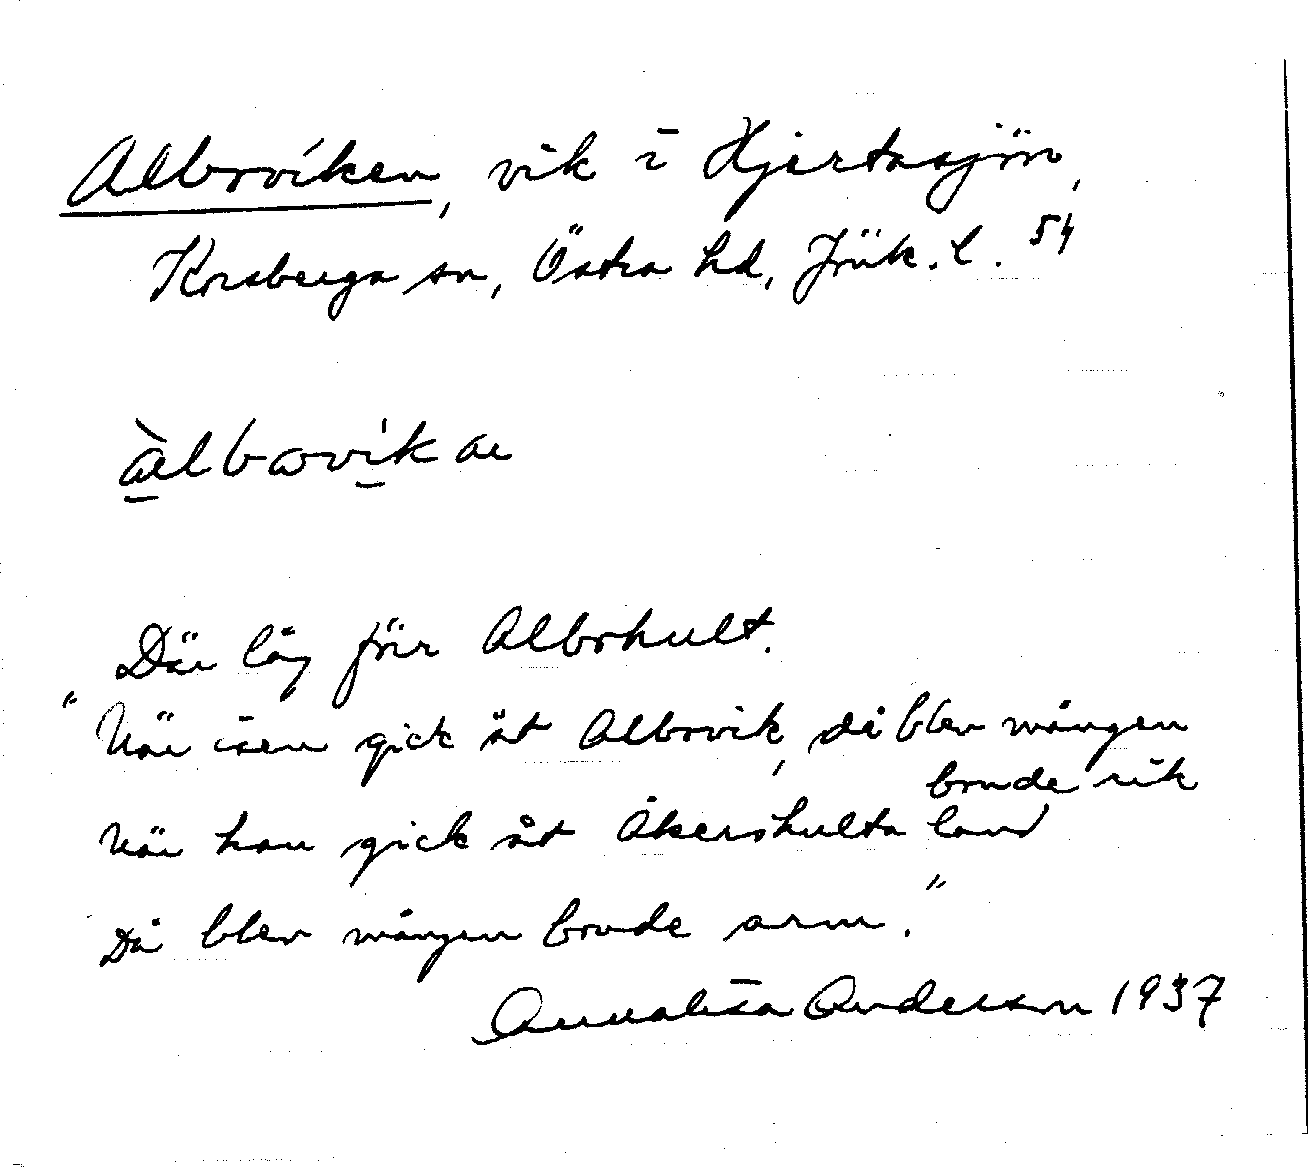 Albovíken, vik i Hjertasjön,
Korsberga sn, Östra hd, Jönk. l. 54
àlbovikæ
Där låg förr Albohult.
"När isen gick åt Albovik, då blev mången
bonde rik
När han gick åt Åkershulta land
Då blev mången bonde arm."
Annalisa Anderson 1937